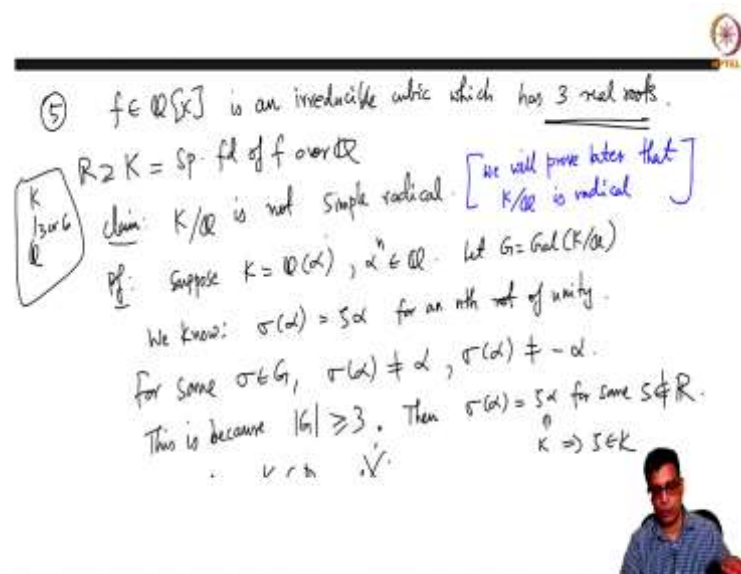 ⑤ f ∈ Q[x] is an irreducible cubic which has 3 real roots.
R ⊇ K = Sp. fd of f over Q
claim: K/Q is not simple radical. [we will prove later that K/Q is radical]
K
| 3 or 6
Q
Pf: Suppose K = Q(α), αⁿ ∈ Q. Let G = Gal(K/Q)
We know: σ(α) = ζα for an nth rt of unity.
For some σ ∈ G, σ(α) ≠ α, σ(α) ≠ -α.
This is because |G| ≥ 3. Then σ(α) = ζα for some ζ ∉ R.
K ⇒ ζ ∈ K